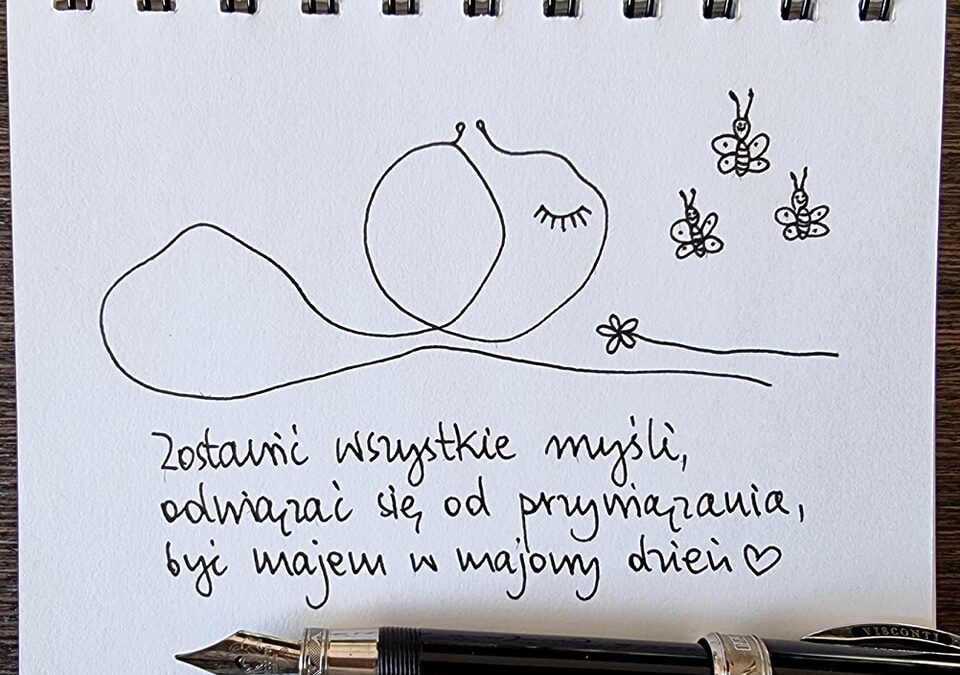 Zostawić wszystkie myśli,
odwiązać się od przywiązania,
być majem w majowy dzień♡
VISCONTI